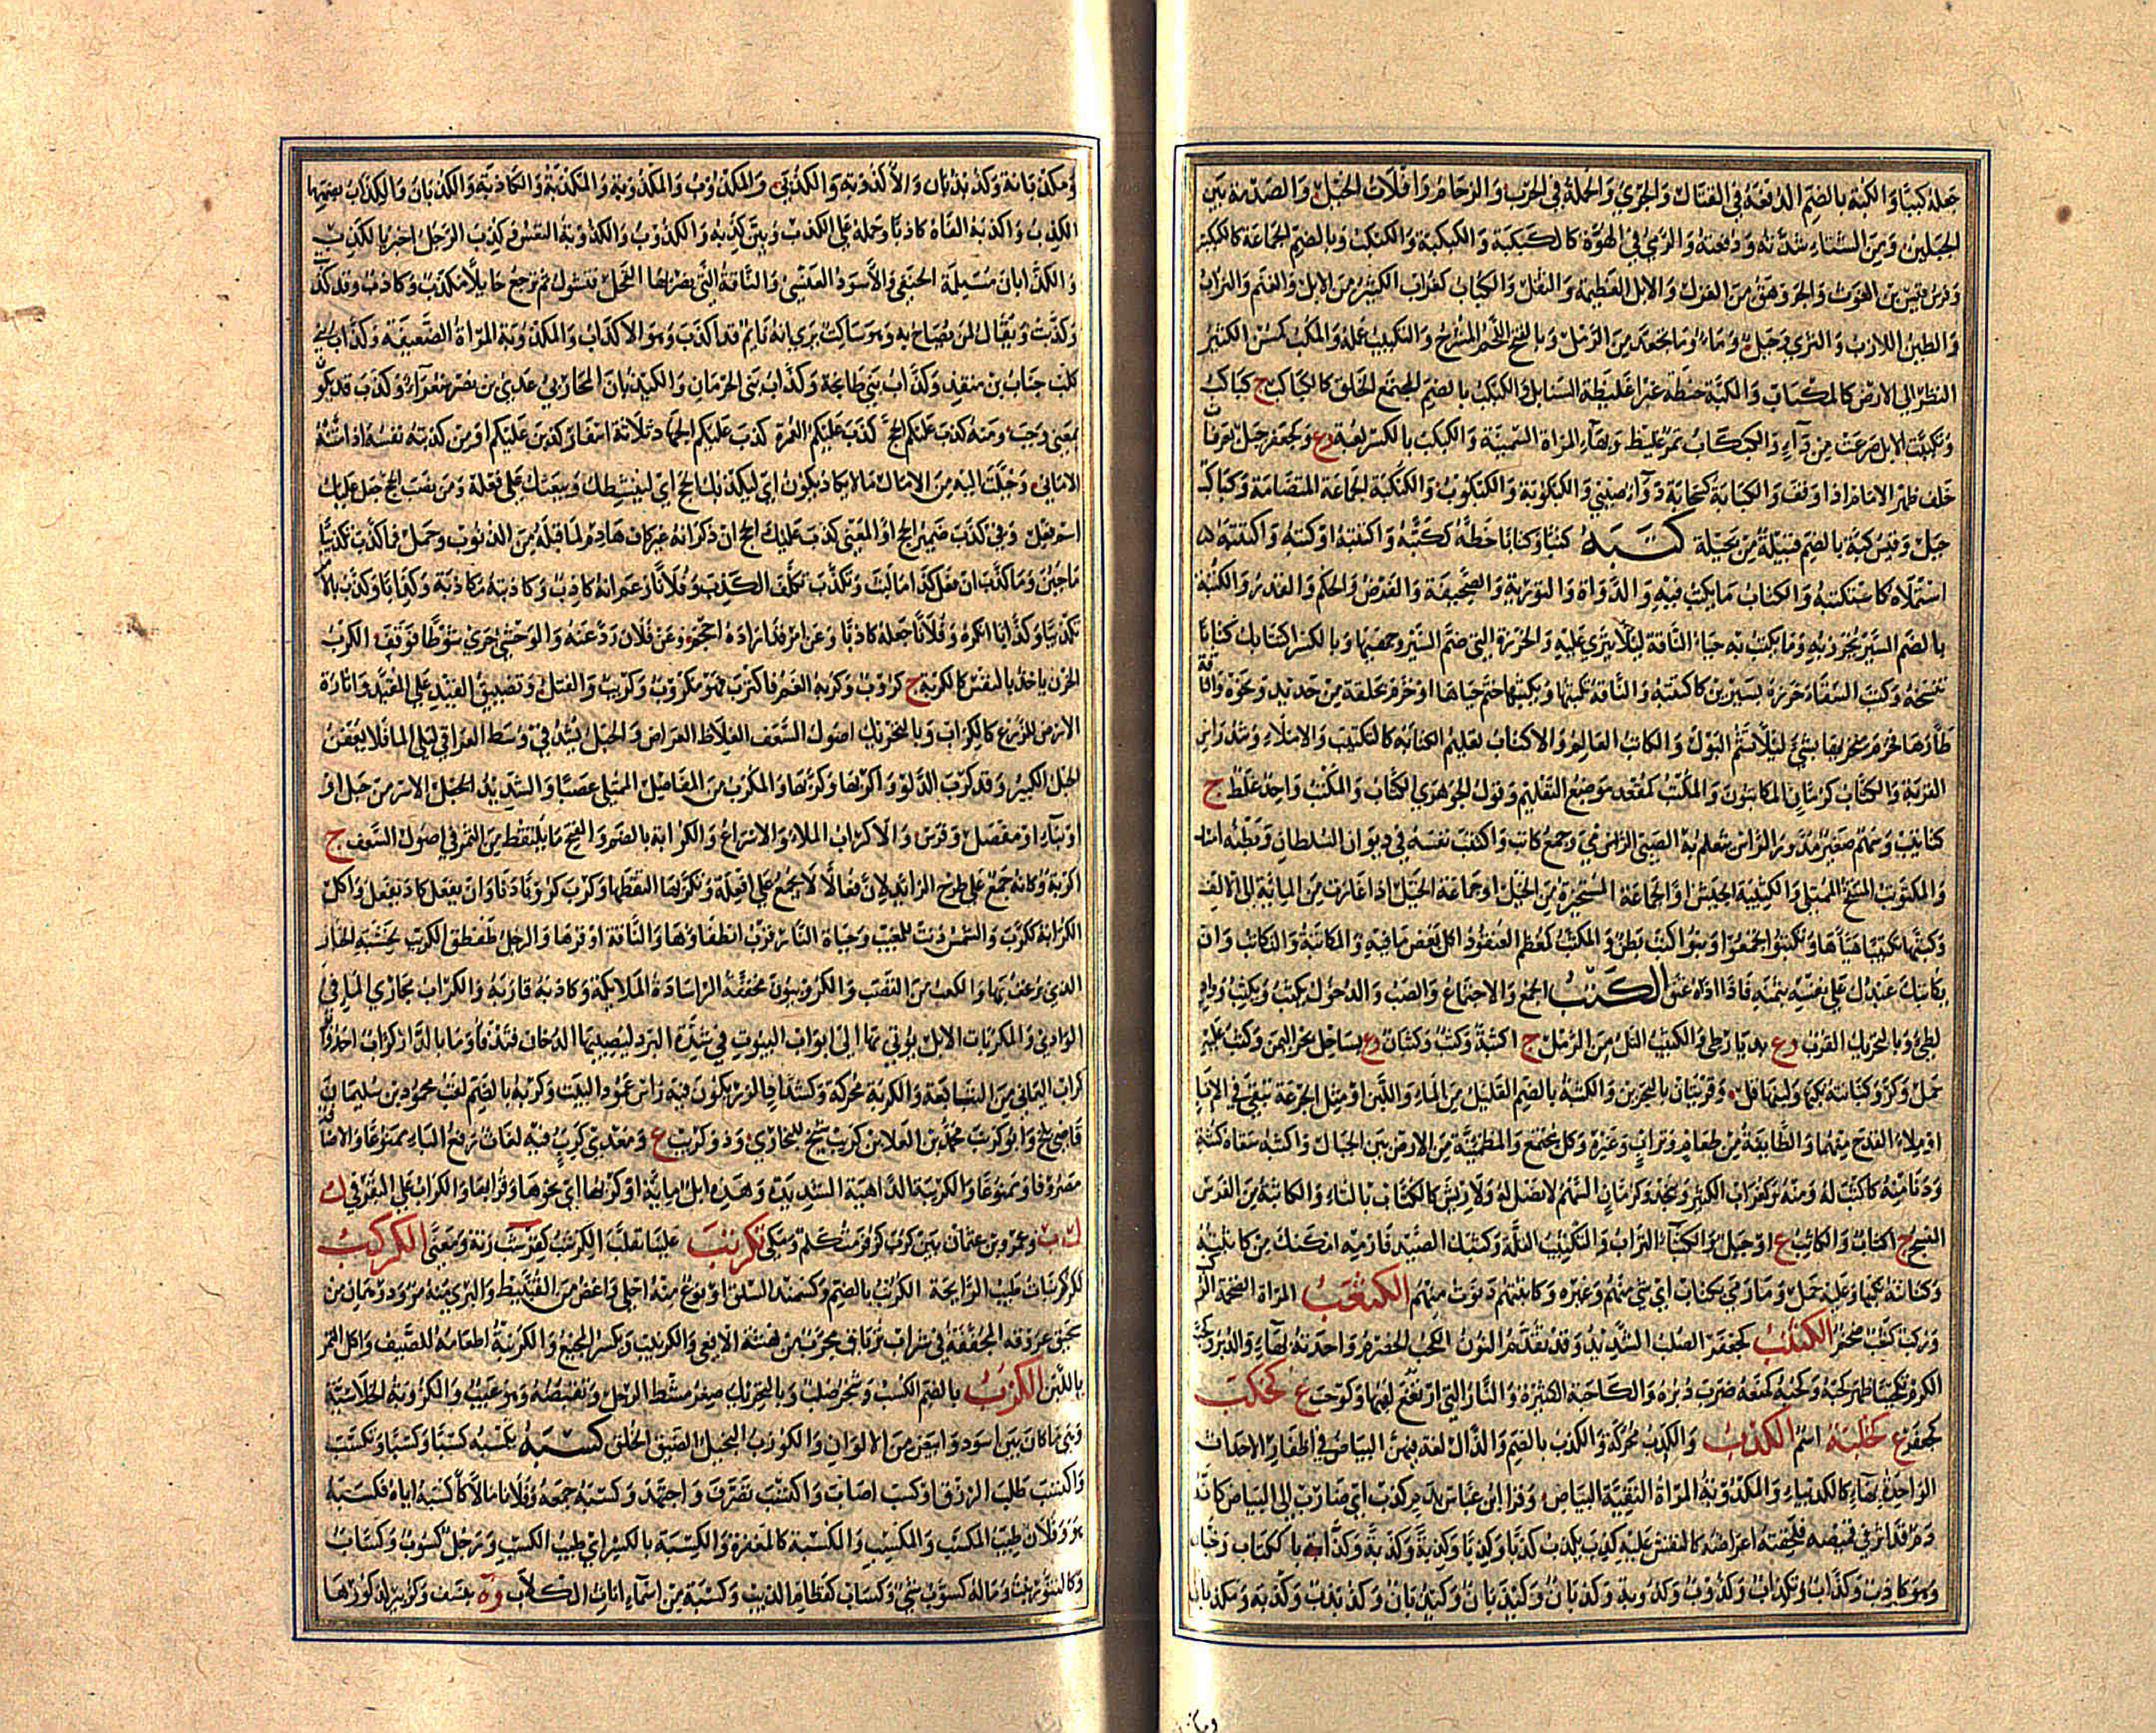 جعله كببا والكبة بالضم الدفعة في القتال والجري والحملة في الحرب والزحام وافلات الخيل والصدمة بين
الجبلين ومن الشتاء شدته ودفعته والرمي في الهوة كالكبكبة والكبكبة والكبكب وبالضم الجماعة كالكبكبة
وفرس قيس بن الغوث والجروهق من الغزل والابل العظيمة والثقل والكباب كغراب الكثير من الابل والغنم والتراب
والطين اللازب والثرى وجبل وماء وما تجعد من الرمل وبالفتح اللحم المشرح والتكبيب عمله والمكب كمسن الكثير
النظر الى الارض كالمكباب والكبة حنطة غبراء غليظة السنابل والكبكب بالضم المجتمع الخلق كالكباكب ج كباكب
وتكببت الابل صرعت من داء والكبكاب تمر غليظ وبهاء المراة السمينة والكبكب بالكسر لعبة وع وكجعفر جبل بعرفات
خلف ظهر الامام اذا وقف والكبابة كسحابة دواء صيني والكبكوبة والكبكوب والكبكبة الجماعة المتضامة وكباكب
جبل وقيس كبة بالضم قبيلة من بجيلة كتبه كتبا وكتابا خطه ككتبه واكتتبه او كتبه واكتتبه
استملاه كاستكتبه والكتاب ما يكتب فيه والدواة والتورية والصحيفة والفرض والحكم والقدر والكتبة
بالضم السير يخرز به وما يكتب به حياء الناقة ليلا ينزى عليه والخرزة التي ضم السير وجهيها وبالكسر اكتتابك كتابا
تنسخه وكتب السقاء خرزه بسيرين كاكتتبه والناقة يكتبها ويكتبها ختم حياها او خزم بحلقة من حديد ونحوه والناقة
ظارها فخزم منخريها بشئ ليلا تشم البول والكاتب العالم والاكتاب تعليم الكتابة كالتكتيب والاملاء وشد راس
القربة والكتاب كرمان الكاتبون والمكتب كمقعد موضع التعليم وقول الجوهري الكتاب والمكتب واحد غلط ج
كتاتيب وسهم صغير مدور الراس يتعلم به الصبي الرمي وجمع كاتب واكتتب نفسه في ديوان السلطان وبطنه امسك
والمكتوتب المنتفخ الممتلي والكتيبة الجيش او الجماعة المستحيزة من الخيل او جماعة الخيل اذا اغارت من الماية الى الالف
وكتبها تكتيبا هياها وتكتبوا تجمعوا وبنو كتب بطن والمكتب كمعظم العنقود اكل بعض ما فيه والمكاتبة والتكاتب وان
يكاتبك عبدك على نفسه بثمنه فاذا اداه عتق الكثب الجمع والاجتماع والصب والدخول يكثب ويكثب وواد
لطيئ وبالتحريك القرب وع بديار طيئ والكثيب التل من الرمل ج اكثبة وكثب وكثبان وع بساحل بحر اليمن وكثب عليه
حمل وكر وكنانته نكبها ولبنها قل وقريتان بالبحرين والكثبة بالضم القليل من الماء واللبن او مثل الجرعة تبقى في الاناء
او ملاء القدح منهما والطايفة من طعام وتراب وغيره وكل مجتمع والمطمئنة من الارض بين الجبال واكثبه سقاه كثبة
ودنا منه كاكثب له ومنه وكغراب الكثير ونجد وكرمان السهم لا نصل له ولا ريش كالكتاب بالتاء والكاثبة من الفرس
المنسج ج اكثاب والكاثب ع او جبل والكثباء التراب والتكثيب القلة وكثبك الصيد فارمه امكنك من كاثبته
وكنانته نكبها وعليه حمل وما رمي بكثاب اي شئ سهم وغيره وكاثبتهم دنوت منهم الكثعب المراة الضخمة الركب
وركب كثعب ضخم الكثنب كجعفر الصلب الشديد وقد تقدم النون الكحب الحصرم واحدته بهاء والدبر وكحب
الكرم تكحيبا ظهر كحبه وكحبه كمنعه ضرب دبره والكاحبة الكثيرة والنار التي ارتفع لهبها وكوحب ع كحكب
كجعفر ع كحلبة اسم الكدب والكدب محركة والكدب بالضم والذال لغة فيهن البياض في اظفار الاحداث
الواحدة بهاء كالكديباء والمكدوبة المراة النقية البياض وقرا ابن عباس بدم كدب اي ضارب الى البياض كانه
دم قد اثر في قميصه فلحقته اعراضه كالنقش عليه كذب يكذب كذبا وكذبا وكذبة وكذبة وكذابا ككتاب وجنان
وهو كاذب وكذاب وتكذاب وكذوب وكذوبة وكذبان وكيذبان وكيذبان وكذبذب وكذبة ومكذبان
ومكذبانة وكذبذبان والاكذوبة والكذبى والمكذوب والمكذوبة والمكذبة والكاذبة والكذبان والكذاب بضمهما
الكذب واكذبه الفاه كاذبا وحمله على الكذب وبين كذبه والكذوب والكذوبة النفس وكذب الرجل اخبر بالكذب
والكذابان مسيلمة الحنفي والاسود العنسي والناقة التي يضربها الفحل فتشول ثم ترجع حايلا مكذب وكاذب وقد كذبت
وكذبت ويقال لمن يصاح به وهو ساكت يري انه نايم قد اكذب وهو الاكذاب والمكذوبة المراة الضعيفة وكذاب بني
كلب جناب بن منقذ وكذاب بني طابخة وكذاب بني الحرماز والكيذبان المحاربي عدي بن نصر شعراء وكذب قد يكون
بمعنى وجب ومنه كذب عليكم الحج كذب عليكم العمرة كذب عليكم الجهاد ثلاثة اسفار كذبن عليكم او من كذبته نفسه اذا منته
الاماني وخيلت اليه من الامال ما لا يكاد يكون اي ليكذبك الحج اي لينشطك ويبعثك على فعله ومن نصب الحج جعل عليك
اسم فعل وفي كذب ضمير الحج او المعنى كذب عليك الحج ان ذكر انه غير كاف هادم لما قبله من الذنوب وحمل فما كذب تكذيبا
ما جبن وما كذب ان فعل كذا ما لبث وتكذب تكلف الكذب وفلانا زعم انه كاذب وكاذبته مكاذبة وكذابا وكذب بالامر
تكذيبا وكذابا انكره وفلانا جعله كاذبا وعن امر قد اراده احجم وعن فلان رد عنه والوحشي جرى شوطا فوقف الكرب
الحزن ياخذ بالنفس كالكربة ج كروب وكربه الغم فاكترب فهو مكروب وكريب والفتل وتضييق القيد على المقيد واثارة
الارض للزرع كالكراب وبالتحريك اصول السعف الغلاظ العراض والحبل يشد في وسط العراقي ليلي الماء فلا يعفن
الحبل الكبير وقد كرب الدلو واكربها وكربها والمكرب من المفاصل الممتلي عصبا والشديد الاسر من حبل او
او بناء او مفصل وفرس والاكراب الملاء والاسراع والكرابة بالضم والفتح ما يلتقط من التمر في اصول السعف ج
اكربة وكانه جمع على طرح الزايد لان فعالا لا يجمع على افعلة وتكربها التقطها وكرب كروبا دنا وان يفعل كاد يفعل واكل
الكرابة ككرب والشمس دنت للمغيب وحياة النار قرب انطفاؤها والناقة اوقرها والرجل طقطق الكريب لخشبة الخباز
الذي يرغف بها والكعب من القصب والكروبيون مخففة الرا سادة الملايكة وكاربه قاربه والكراب مجاري الماء في
الوادي والمكربات الابل يوتى بها الى ابواب البيوت في شدة البرد ليصيبها الدخان فتدفا وما بالدار كراب احد وابو
كرب اليماني من التبابعة والكربة محركة وكشداد الزر يكون فيه راس عمود البيت وكربة بالضم لقب محمود بن سليمان
قاضي بلخ وابو كريب محمد بن العلا بن كريب شيخ للبخاري وذو كريب ع ومعدي كرب فيه لغات رفع الباء ممنوعا والاضافة
مصروفا وممنوعا والكريبة الداهية الشديدة وهذه ابل ماية او كربها اي نحوها وقرابتها والكراب على البقر في ك
ل ب وعمرو بن عثمان بن كرب كزفر متكلم مكي تكرتب علينا تقلب الكرشب كقرشب زنة ومعنى الكركب
كركبان طيب الرايحة الكرنب بالضم وكسمند السلق او نوع منه احلى واغض من القنبيط والبري منه مر ودرهمان من
سحيق عروقه المجففة في شراب ترياق مجرب من نهشة الافعى والكرنيب ويكسر المجيع والكرنبة اطعامه للضيف واكل التمر
باللبن الكزب بالضم الكسب وشجر صلب وبالتحريك صغر مشط الرجل وتقبضه وهو عيب والكزوبة الخلاسية
وهي ما كان بين اسود وابيض من الالوان والكوزب البخيل الضيق الخلق كسبه يكسبه كسبا وكسبا وتكسب
واكتسب طلب الرزق او كسب اصاب واكتسب تصرف واجتهد وكسبه جمعه وفلانا مالا كاكسبه اياه فكسبه
هو وفلان طيب المكسب والمكسب والمكسبة كالمغفرة والكسبة بالكسر اي طيب الكسب ورجل كسوب وكساب
وكالتنور نبت وما له كسوب شئ وكساب كقطام الذيب وكسبة من اسماء اناث الكلاب وة بنسف وكزبير لذكورها